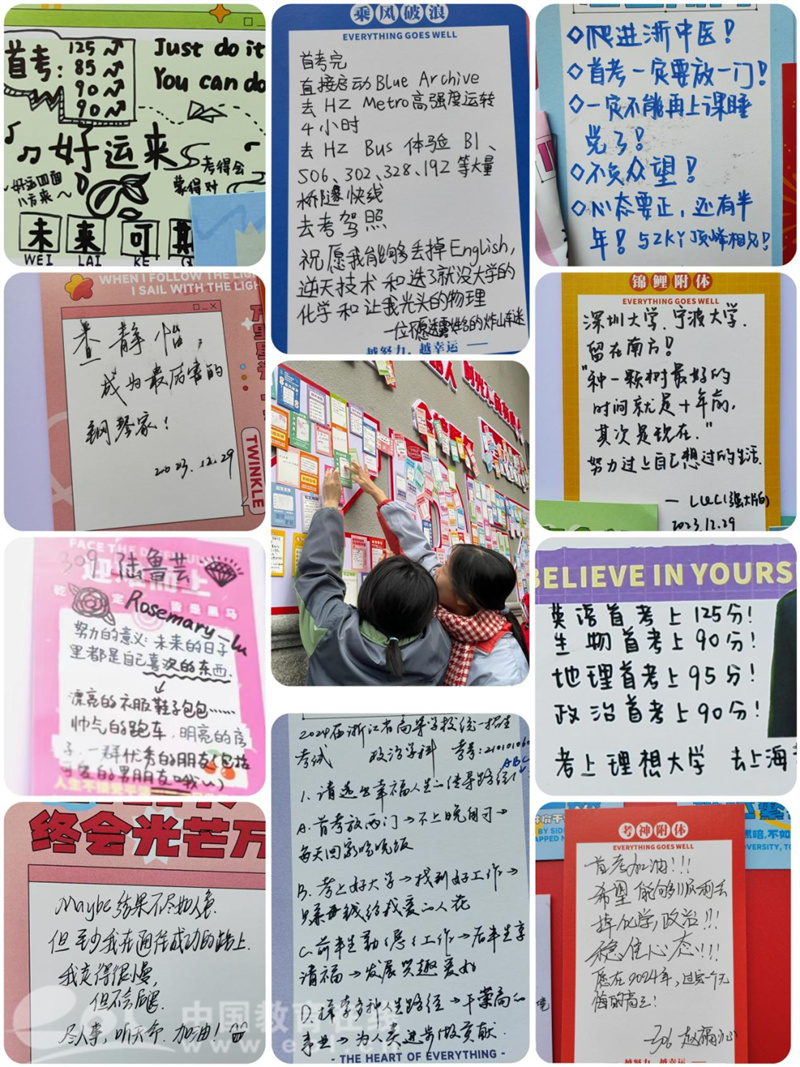 首考：
125
85
90
90
Just do it
You can do
好运来
考得全
蒙得对
好运四面
八方来~
未来可期
WEI LAI KE
乘风破浪
EVERYTHING GOES WELL
首考完
直接启动Blue Archive
去HZ Metro高强度运转
4小时
去HZ Bus 体验B1、
506、302、328、192等大量
快线
去考驾照
祝愿我能够丢掉English,
逆天技术和选了就没大学的
化学和让我光头的物理
越努力，越幸运
◇爬进浙中医！
◇首考一定要放一门！
◇一定不能再上课睡
觉了！
◇不负众望！
◇心态要正，还有半
年！52KY顶峰相见！
WHEN I FOLLOW THE LIGHT
I SAIL WITH THE LIGHT
静怡，
成为最厉害的
钢琴家！
2023.12.29
TWINKLE
锦鲤附体
EVERYTHING GOES WELL
深圳大学、宁波大学、
留在南方！
"种一颗树最好的
时间就是十年前，
其次是现在."
努力过上自己想过的生活.
2023.12.29
309 陆鲁芸
Rosemary-lu
努力的意义：未来的日子
里都是自己喜欢的东西.
漂亮的衣服鞋子包包……
帅气的跑车，明亮的房
子，一群优秀的朋友(包括
可爱的男朋友
BELIEVE IN YOURS
英语首考上125分！
生物首考上90分！
地理首考上95分！
政治首考上90分！
考上理想大学 去上海
终会光芒万
Maybe结果不尽如人意.
但至少我在通往成功的路上.
我变得很慢，
但不会后退.
尽人事，听天命.加油！
2024届浙江省高等学校统一招生
考试 政治学科 考号：
1. 请选出幸福人生的传导路径
A.首考放两门→不上晚自习→
每天回家吃晚饭
B.考上好大学→找到好工作→
C.前半生勤(恳)工作→后半生享
清福→发展兴趣爱好
D.探索多种人生路径→干荣高的
事业→为人类进步做贡献.
- THE HEART OF EVERYTHING -
考神附体
EVERYTHING GOES WELL
首考加油！！！
希望能够顺利去
掉化学，政治！！！
稳住心态！！！
愿在2024年，过完一个无
悔的高三！
中国教育在线